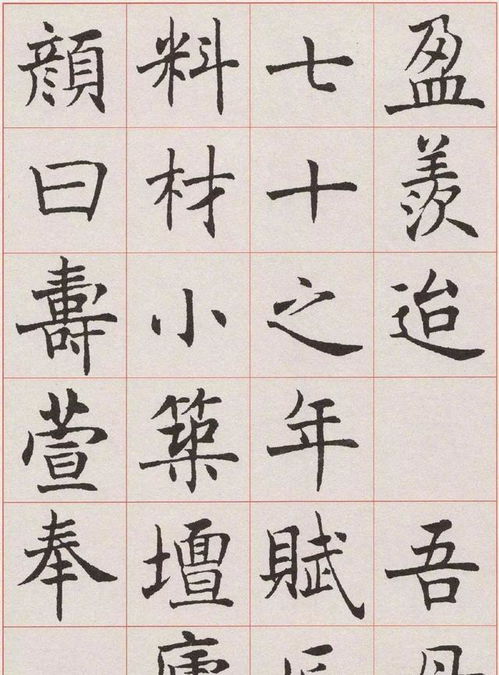 盈羨迨 吾
七十之年賦
料材小築壇
顏曰壽萱奉